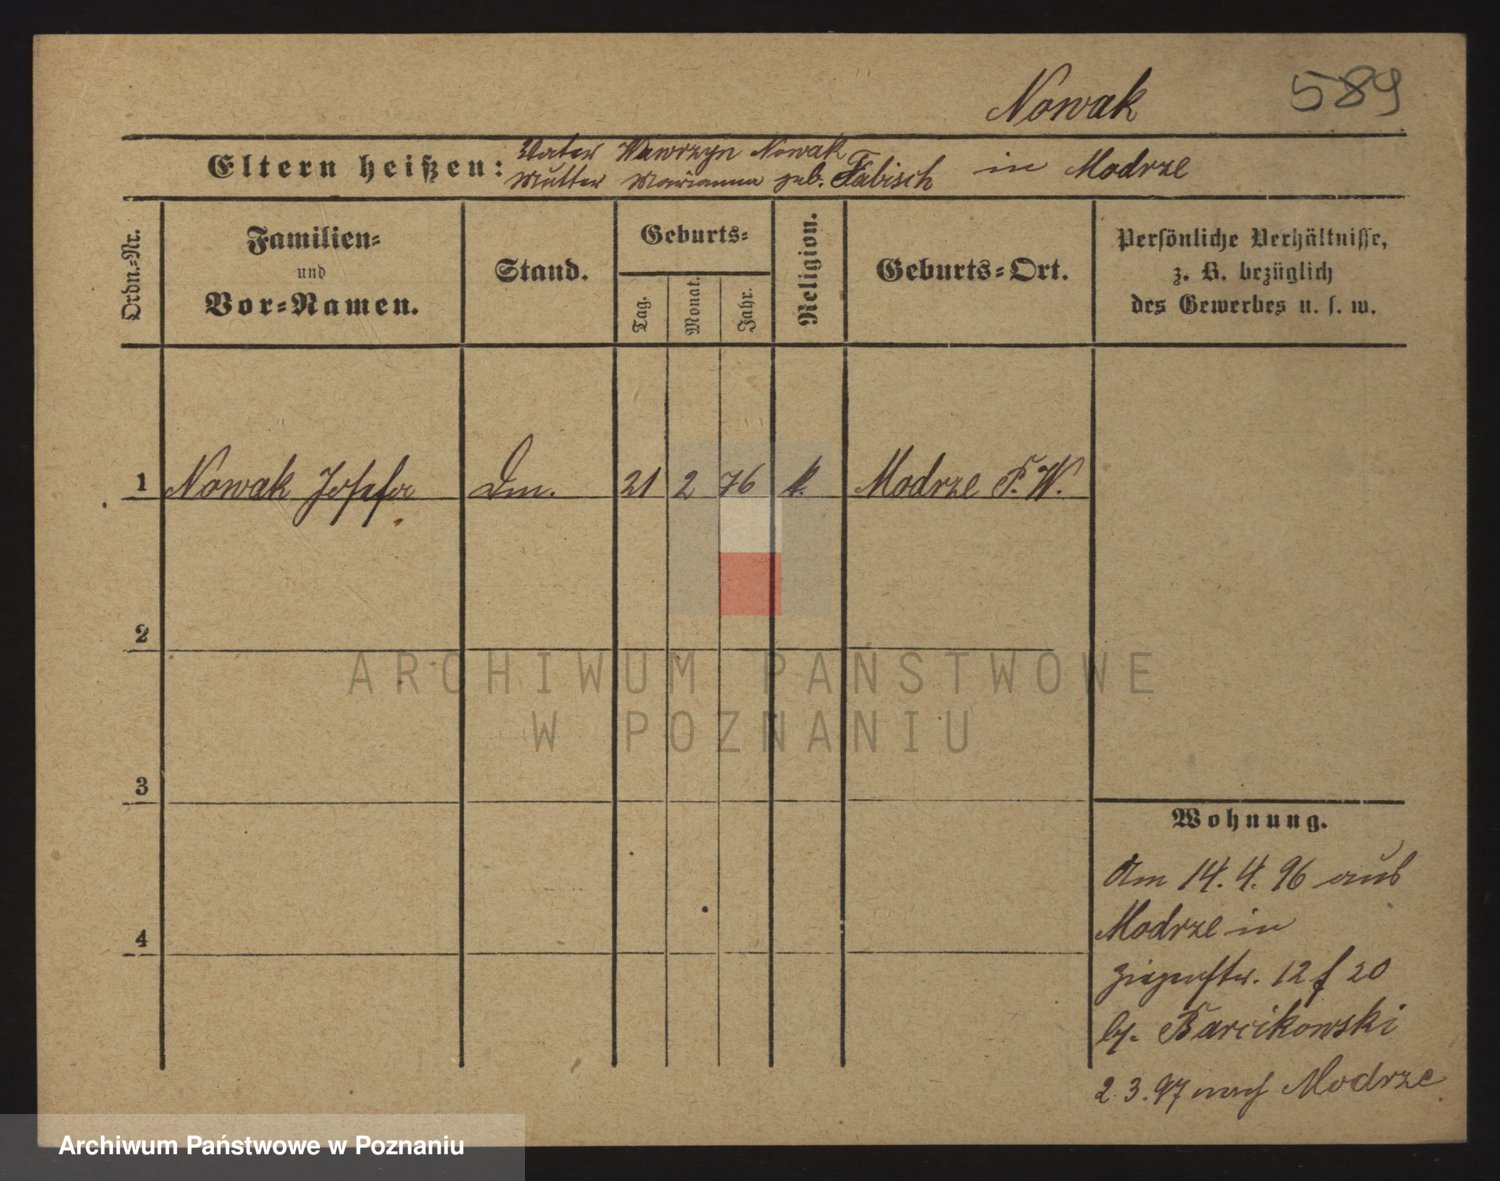 Nowak 589
Eltern heißen: Vater Wawrzyn Nowak
Mutter Marianna geb. Fabisch in Modrze
Ordn.-Nr.
Familien-
und
Vor-Namen.
Stand.
Geburts-
Tag.
Monat.
Jahr.
Religion.
Geburts-Ort.
Persönliche Verhältnisse,
z. B. bezüglich
des Gewerbes u. s. w.
1 Nowak Josefa Dm. 21 2 76 k. Modrze P. W.
2
ARCHIWUM PAŃSTWOWE
W POZNANIU
3
Wohnung.
Am 14. 4. 96 aus
4
Modrze in
12 f 20
b. Barcikowski
2. 3. 97 nach Modrze
Archiwum Państwowe w Poznaniu